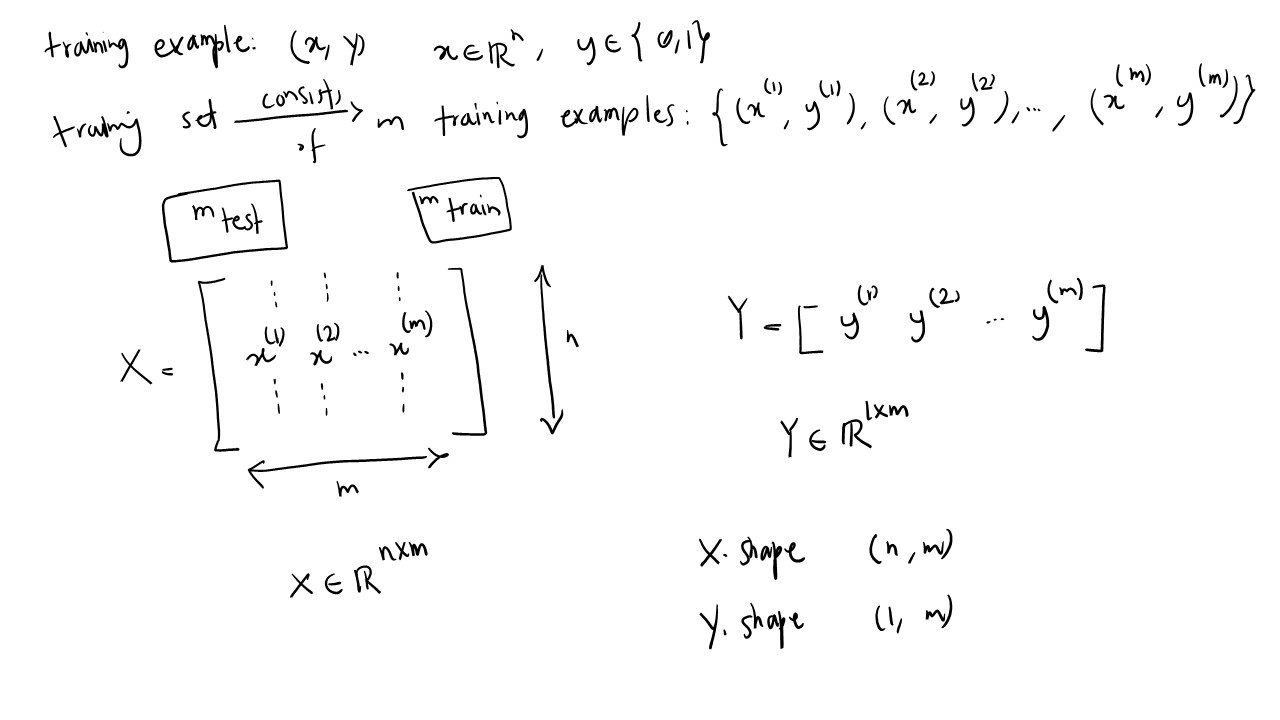 training example: (x, y) x ∈ ℝⁿ, y ∈ {0,1}
training set consists of → m training examples: {(x⁽¹⁾, y⁽¹⁾), (x⁽²⁾, y⁽²⁾), ..., (x⁽ᵐ⁾, y⁽ᵐ⁾)}
m test m train
X = [ x⁽¹⁾ x⁽²⁾ ... x⁽ᵐ⁾ ] n
m
Y = [ y⁽¹⁾ y⁽²⁾ ... y⁽ᵐ⁾ ]
Y ∈ ℝ^{1×m}
X ∈ ℝ^{n×m}
X.shape (n, m)
Y.shape (1, m)